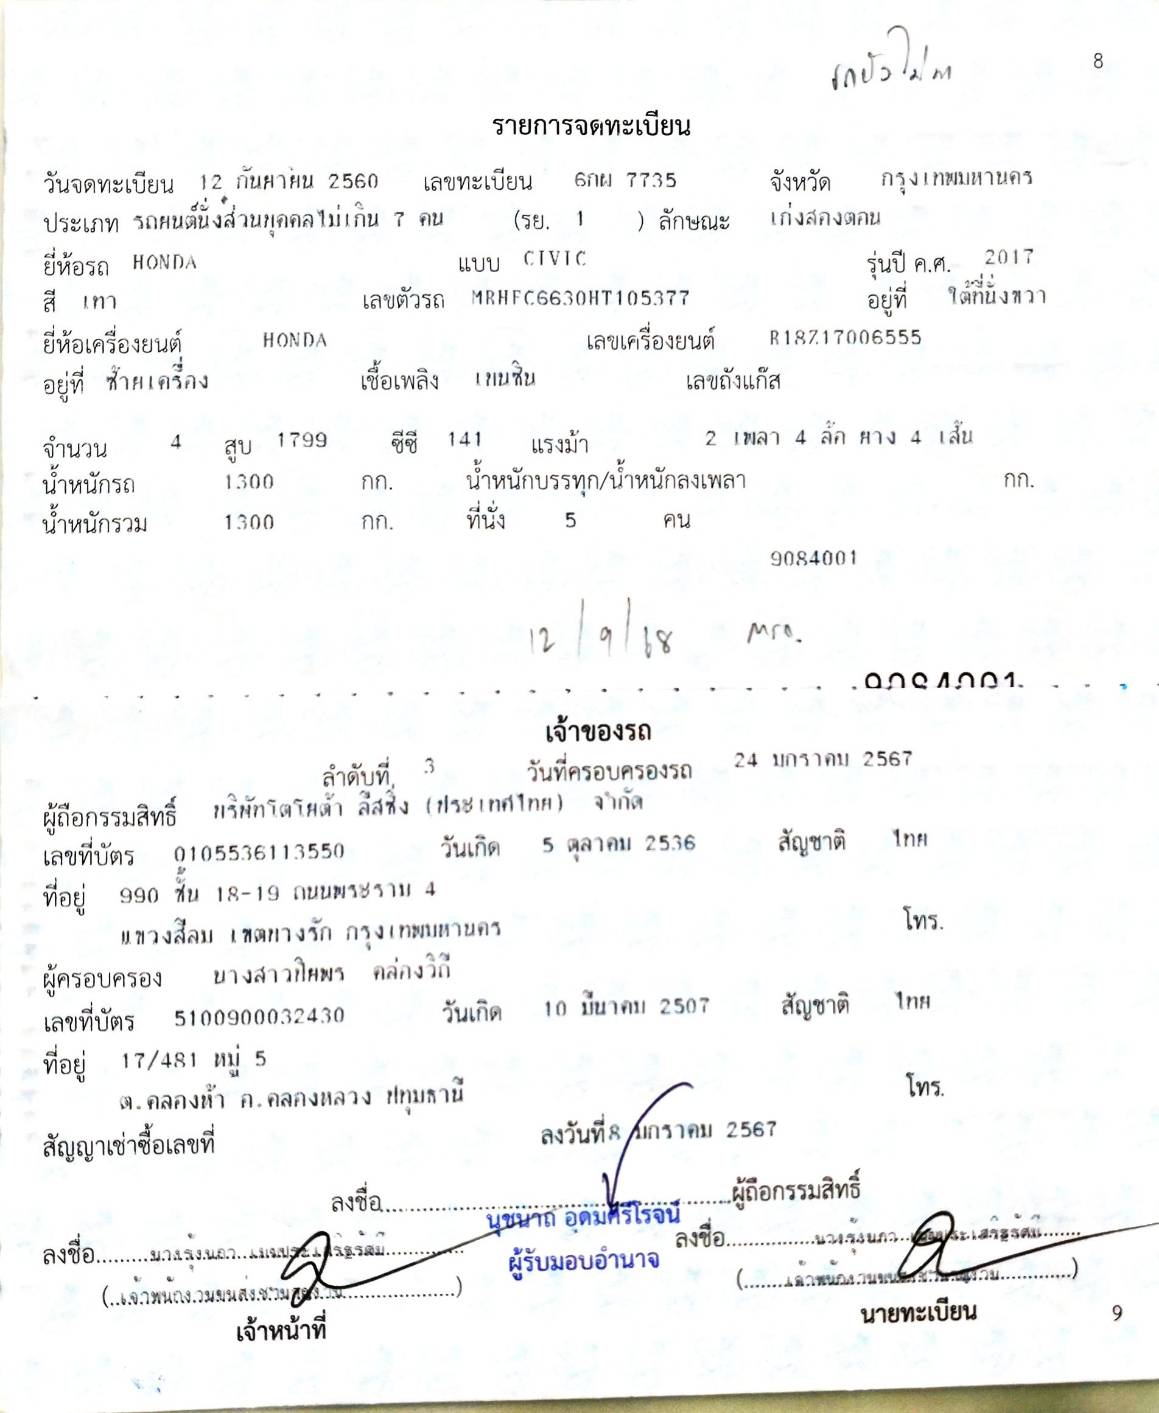 8
รายการจดทะเบียน
วันจดทะเบียน 12 กันยายน 2560 เลขทะเบียน 6กผ 7735 จังหวัด กรุงเทพมหานคร
ประเภท รถยนต์นั่งส่วนบุคคลไม่เกิน 7 คน (รย. 1 ) ลักษณะ เก๋งสองตอน
ยี่ห้อรถ HONDA แบบ CIVIC รุ่นปี ค.ศ. 2017
สี เทา เลขตัวรถ MRHFC6630HT105377 อยู่ที่ ใต้ที่นั่งขวา
ยี่ห้อเครื่องยนต์ HONDA เลขเครื่องยนต์ R18Z17006555
อยู่ที่ ซ้ายเครื่อง เชื้อเพลิง เบนซิน เลขถังแก๊ส
จำนวน 4 สูบ 1799 ซีซี 141 แรงม้า 2 เพลา 4 ล้อ ยาง 4 เส้น
น้ำหนักรถ 1300 กก. น้ำหนักบรรทุก/น้ำหนักลงเพลา กก.
น้ำหนักรวม 1300 กก. ที่นั่ง 5 คน
9084001
12/9/68
9084001
เจ้าของรถ
ลำดับที่ 3 วันที่ครอบครองรถ 24 มกราคม 2567
ผู้ถือกรรมสิทธิ์ บริษัทโตโยต้า ลีสซิ่ง (ประเทศไทย) จำกัด
เลขที่บัตร 0105536113550 วันเกิด 5 ตุลาคม 2536 สัญชาติ ไทย
ที่อยู่ 990 ชั้น 18-19 ถนนพระราม 4
แขวงสีลม เขตบางรัก กรุงเทพมหานคร โทร.
ผู้ครอบครอง นางสาวปิยพร คล่องวิถี
เลขที่บัตร 5100900032430 วันเกิด 10 มีนาคม 2507 สัญชาติ ไทย
ที่อยู่ 17/481 หมู่ 5
ต.คลองห้า อ.คลองหลวง ปทุมธานี โทร.
สัญญาเช่าซื้อเลขที่ ลงวันที่ 8 มกราคม 2567
ลงชื่อ ผู้ถือกรรมสิทธิ์
นุชนาถ อุดมศรีโรจน์
ผู้รับมอบอำนาจ
ลงชื่อ ลงชื่อ
เจ้าหน้าที่ นายทะเบียน
9